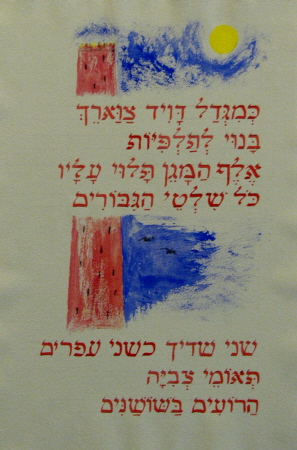 כְּמִגְדַּל דָּוִיד צַוָּארֵךְ
בָּנוּי לְתַלְפִּיּוֹת
אֶלֶף הַמָּגֵן תָּלוּי עָלָיו
כֹּל שִׁלְטֵי הַגִּבּוֹרִים
שני שדיך כשני עפרים
תְּאוֹמֵי צְבִיָּה
הָרוֹעִים בַּשּׁוֹשַׁנִּים